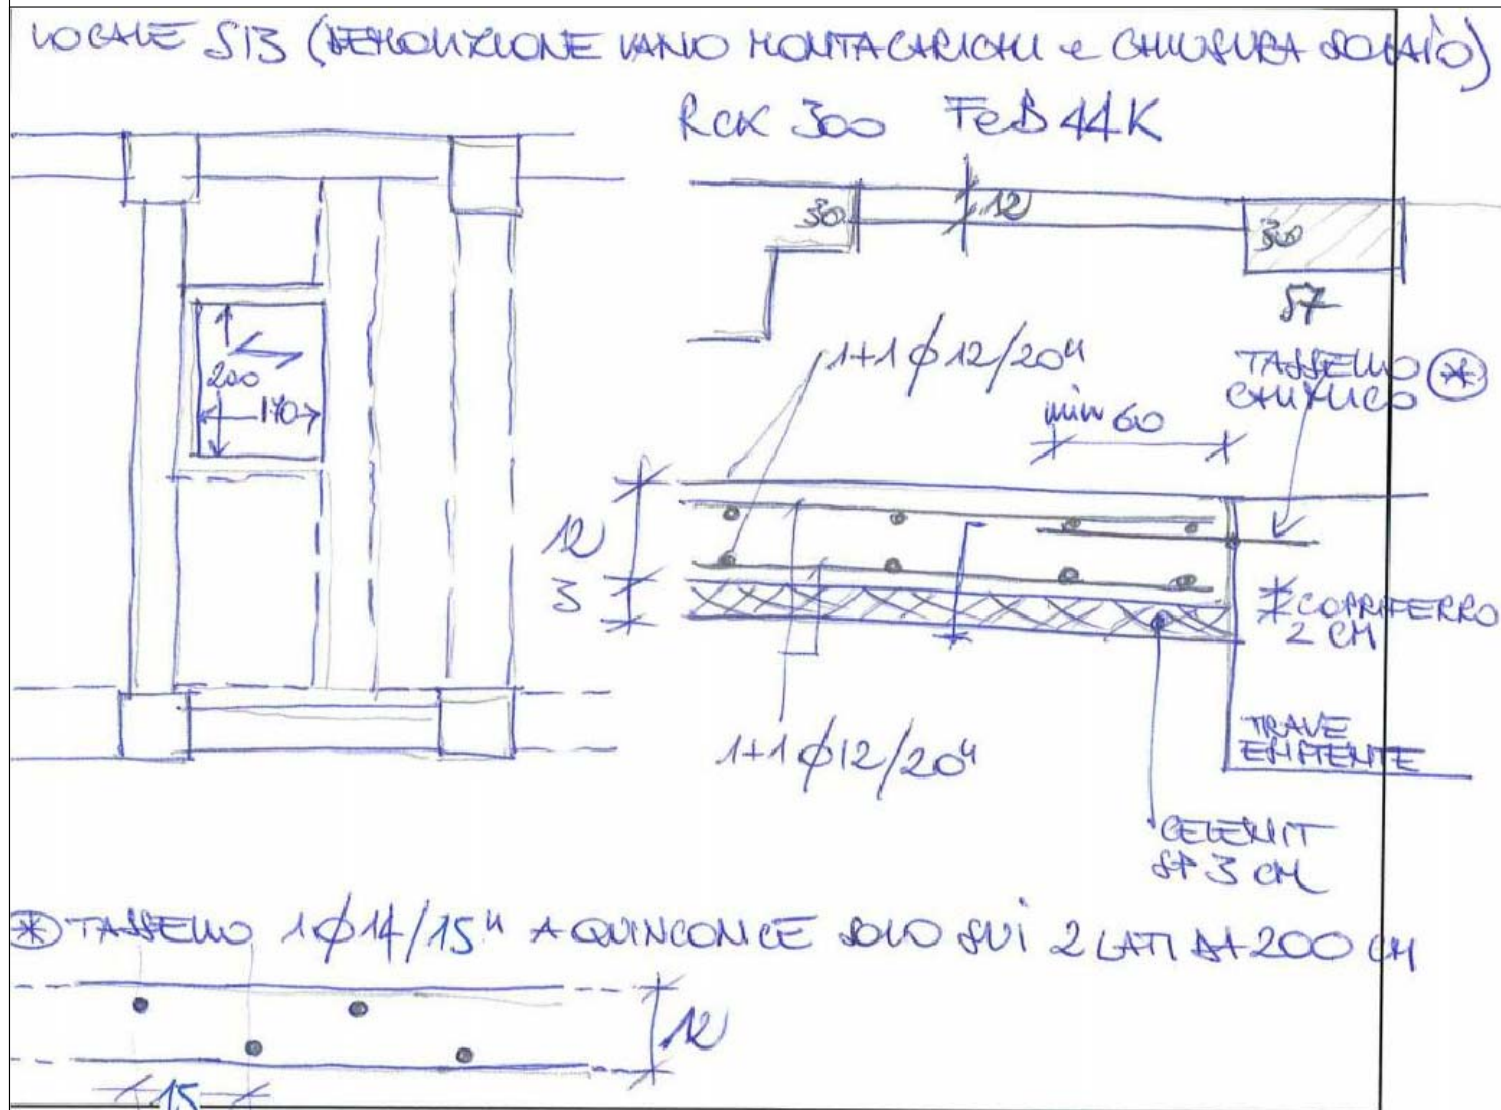 LOCALE S13 (DEMOLIZIONE VANO MONTACARICHI e CHIUSURA SOLAIO)
RCK 300 FeB 44K
30
12
30
57
200
170
1+1 ϕ 12/20"
min 60
TASSELLO *
CHIMICO
12
3
COPRIFERRO
2 CM
1+1 ϕ 12/20"
TRAVE
ESISTENTE
CELENIT
SP 3 CM
* TASSELLO 1 ϕ 14/15" A QUINCONCE SOLO SUI 2 LATI DA 200 CM
12
15